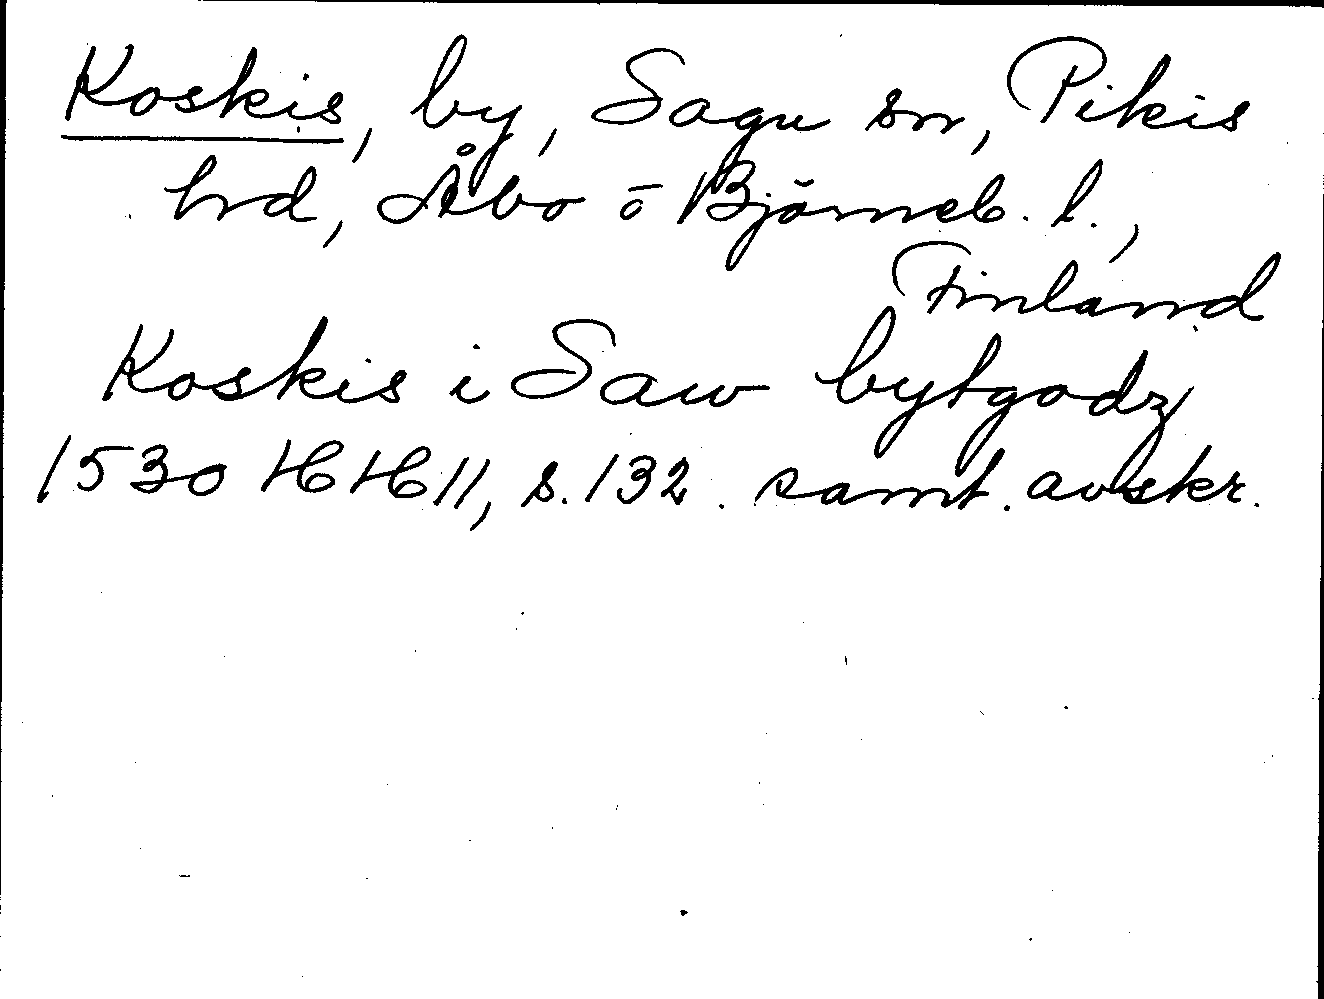 Koskis, by, Sagu sn, Pikis
hrd, Åbo o Björneb. l.,
Finland
Koskis i Saw bytgodz
1530 HH 11, s. 132. samt. avskr.